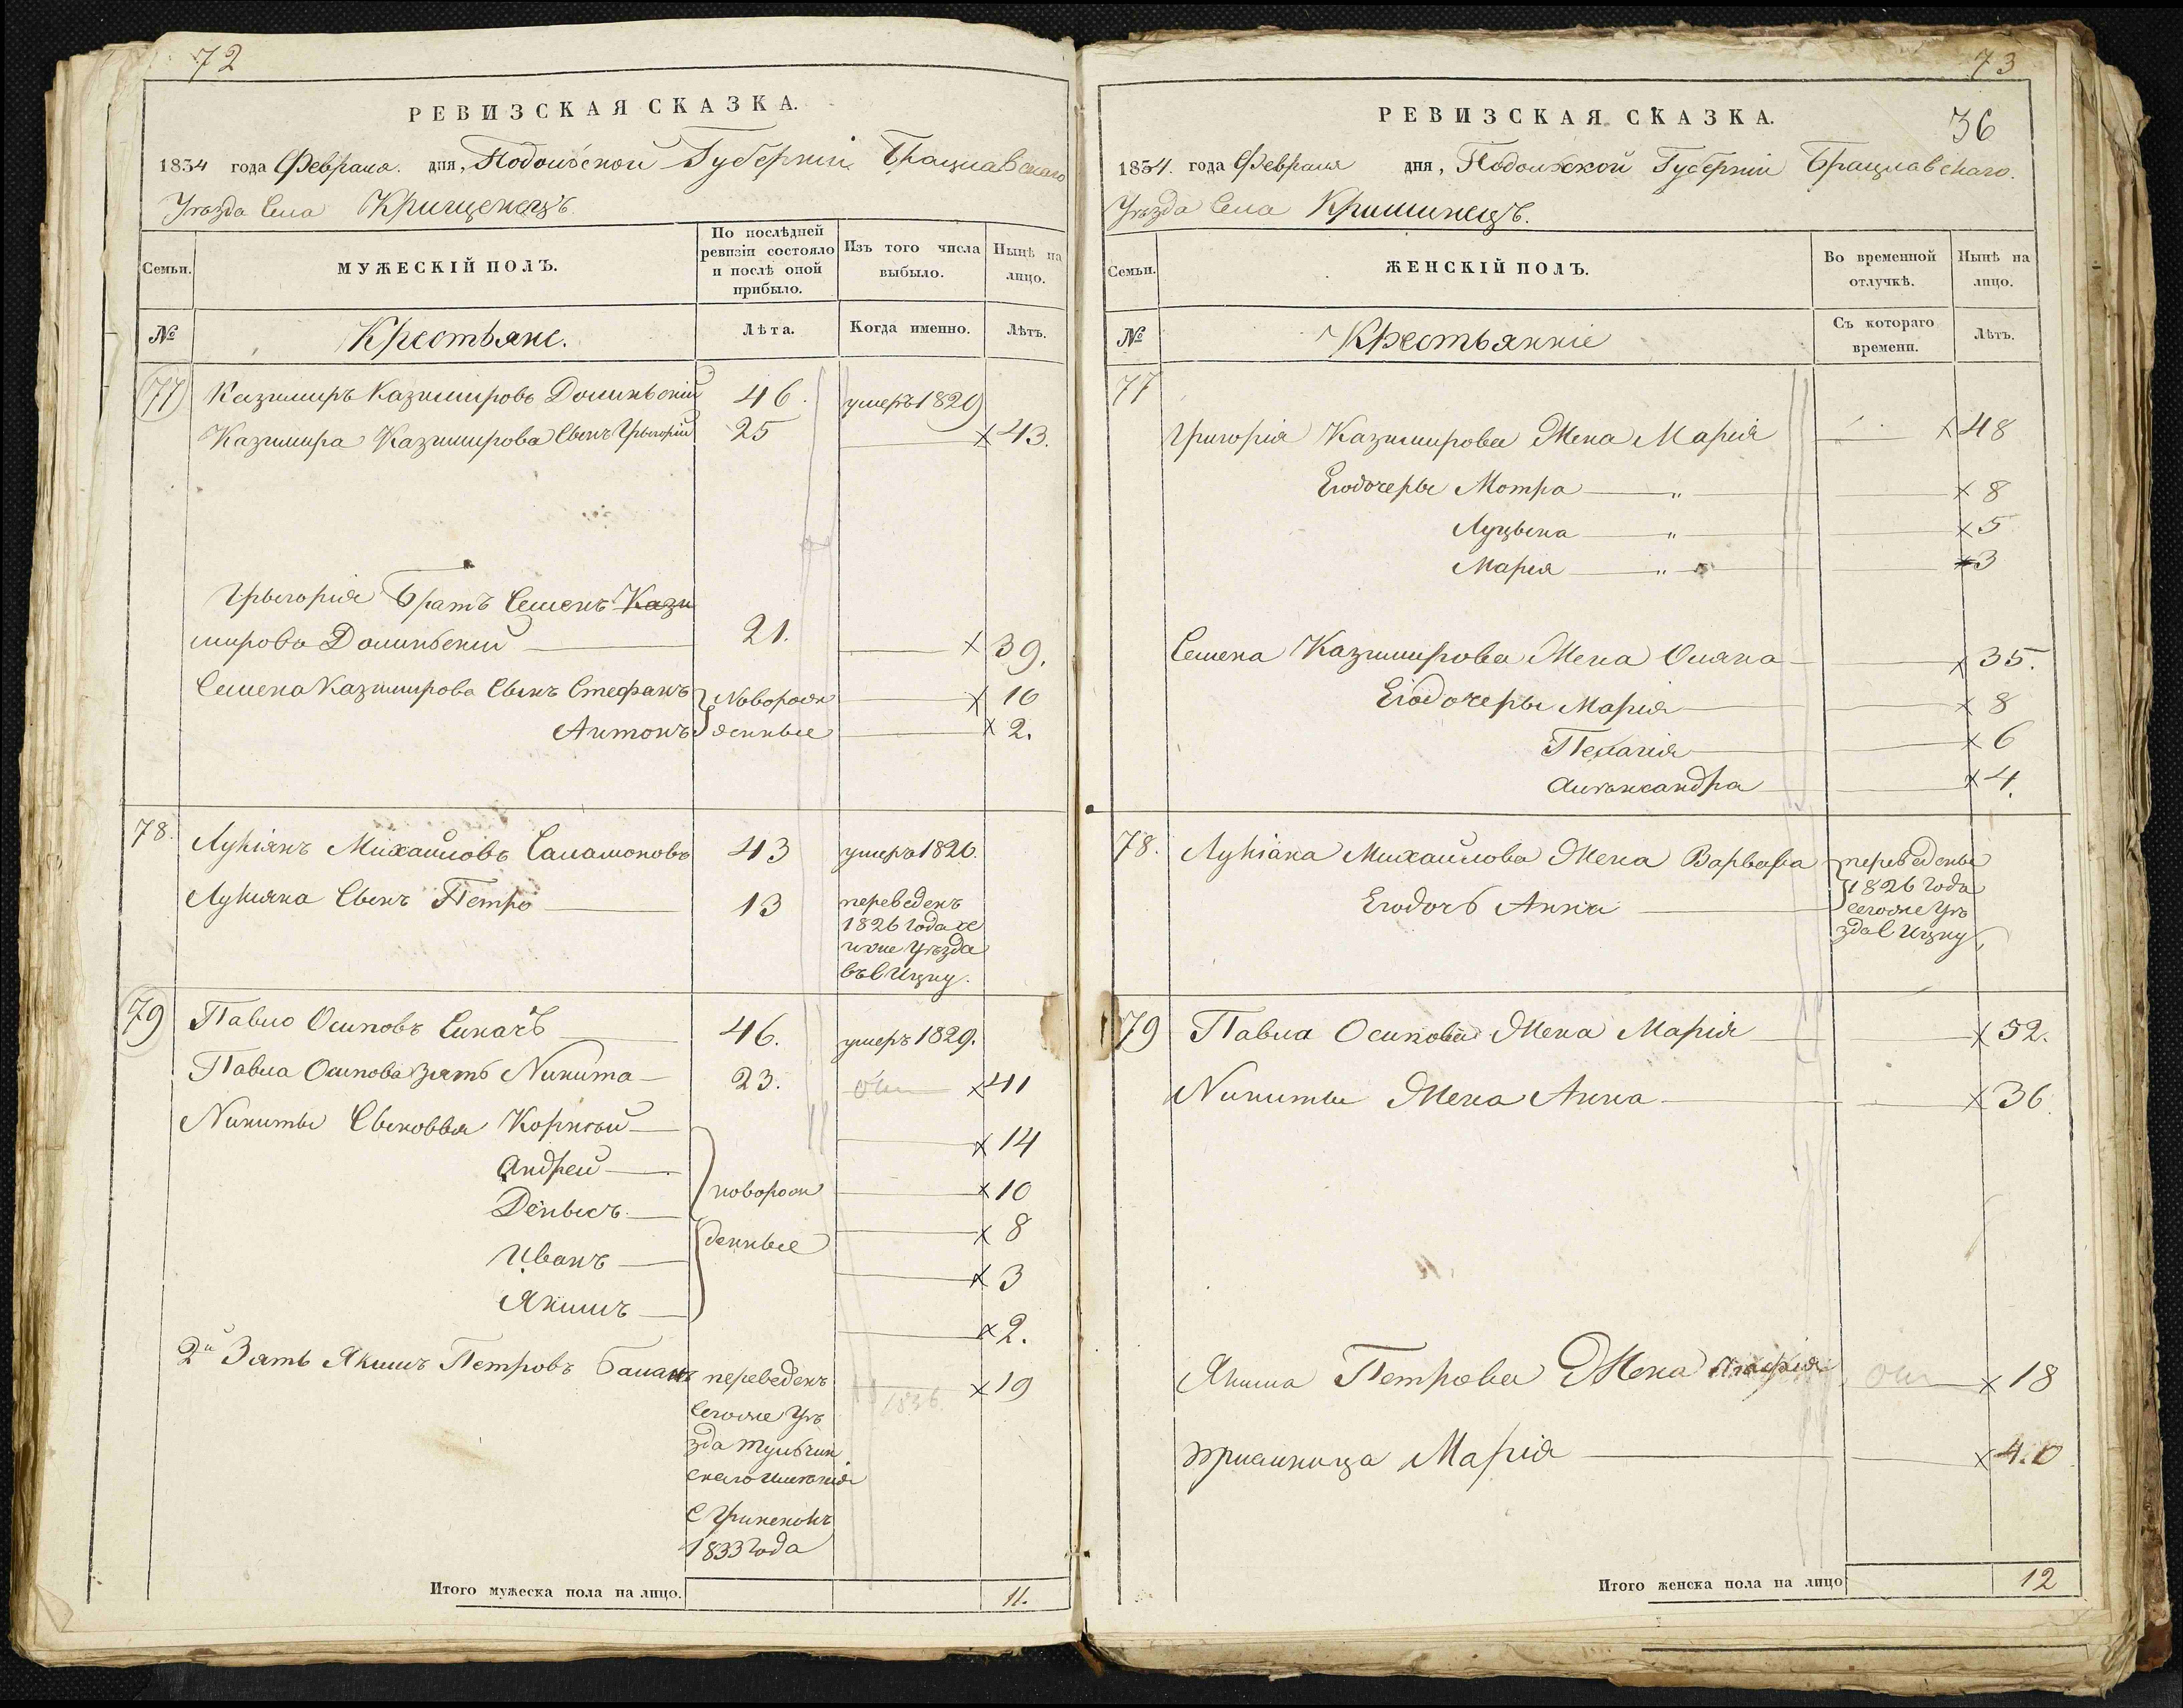 72
РЕВИЗСКАЯ СКАЗКА.
1834 года Февраля. дня, Подольской Губерніи Брацлавскаго
Уѣзда Села Крищенецъ.
Семьи.
МУЖЕСКІЙ ПОЛЪ.
По послѣдней ревизіи состояло и послѣ оной прибыло.
Изъ того числа выбыло.
Нынѣ на лицо.
№
Крестьяне.
Лѣта.
Когда именно.
Лѣтъ.
77 Казимиръ Казимировъ Долиньскій 46. умеръ 1829
Казимира Казимирова Сынъ Грыгорій 25 х 43.
Грыгорія Братъ Семенъ Кази
мировъ Долиньскій 21. х 39.
Семена Казимирова Сынъ Стефанъ Новорож х 10
Антонъ денные х 2.
78. Лукіянъ Михайловъ Саламоновъ 43 умеръ 1826.
Лукияна Сынъ Петро 13 переведенъ
1826 года се
гоже Уѣзда
79 Павло Осиповъ Сикачъ 46. умеръ 1829.
Павла Осипова зять Никита 23. х 41
Никиты Сыновья Корнѣй х 14
Андрей х 10
Денысъ новорож х 8
Иванъ денные х 3
Якимъ х 2.
2й Зять Якимъ Петровъ переведенъ 1836. х 19
Сегоже Уѣ
зда Тульчин
скаго имѣнія
1833 года
Итого мужеска пола на лицо. 11.
73
36
РЕВИЗСКАЯ СКАЗКА.
1834. года Февраля дня, Подольской Губерніи Брацлавскаго.
Уѣзда Села Кришинецъ.
Семьи.
ЖЕНСКІЙ ПОЛЪ.
Во временной отлучкѣ.
Нынѣ на лицо.
№
Крестьянкіе
Съ котораго времени.
Лѣтъ.
77
Григорія Казимирова Жена Марія х 48
Егодочеры Мотра — „ х 8
Луцына — „ х 5
Марія — „ х 3
Семена Казимирова Жена Оляна х 35.
Егодочеры Марія х 8
Пелагія х 6
Алѣксандра х 4.
78. Лукіана Михайлова Жена Варвара переведены
1826 года
Егодочь Анна сегоже Уѣ
79 Павла Осипова Жена Марія х 52.
Никиты Жена Анна х 36.
Якима Петрова Жена х 18
Марія х 40
Итого женска пола на лицо 12